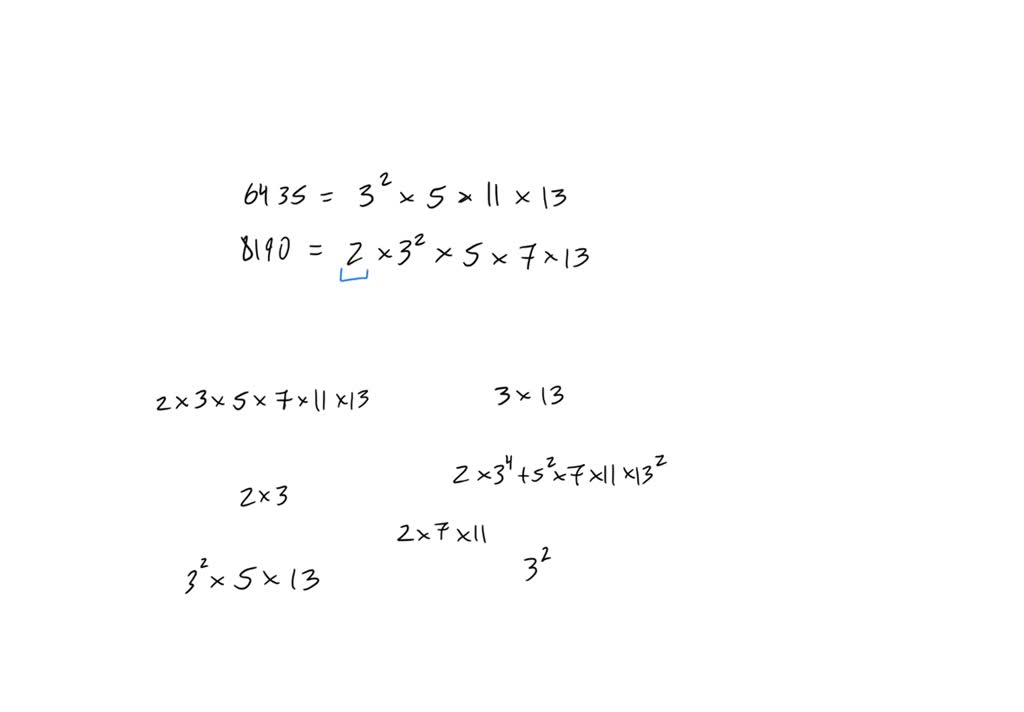 6435 = 3² × 5 × 11 × 13
8190 = 2 × 3² × 5 × 7 × 13
2 × 3 × 5 × 7 × 11 × 13
3 × 13
2 × 3⁴ + 5² × 7 × 11 × 13²
2 × 3
2 × 7 × 11
3²
3² × 5 × 13